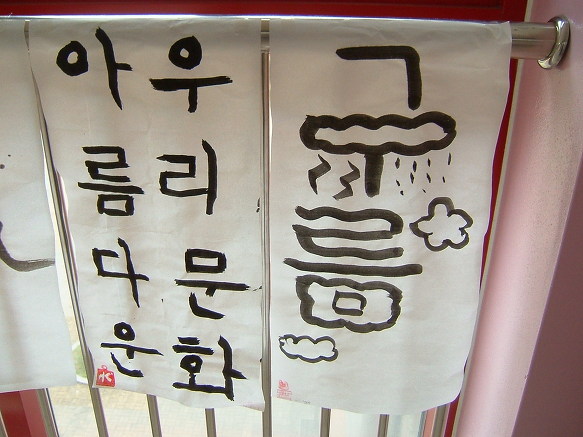 아름다운
우리문화
구름